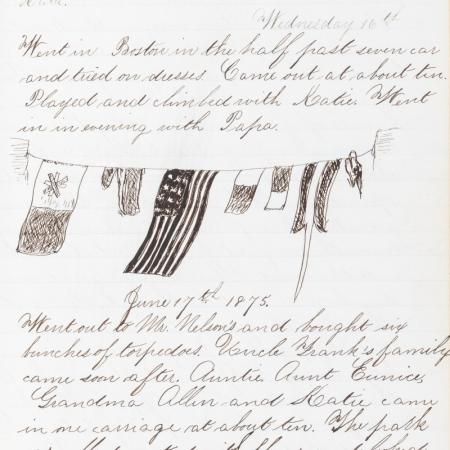 Wednesday 16th
Went in Boston in the half past seven car
and tried on dresses. Came out at about ten.
Played and climbed with Katie. Went
in in evening with Papa.
June 17th 1875.
Went out to Mr. Nelson's and bought six
bunches of torpedoes. Uncle Frank's family
came soon after. Auntie, Aunt Eunice,
Grandma Allen and Katie came
in one carriage at about ten. The park